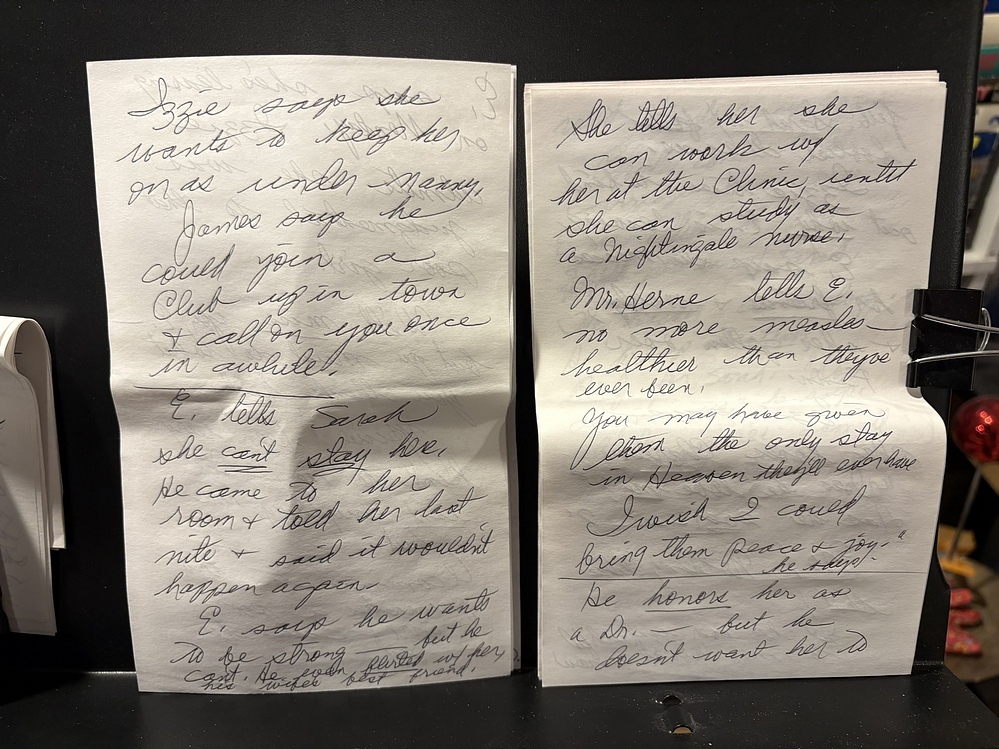 Izzie says she
wants to keep her
on as under nanny.
James says he
could join a
Club up in town
+ call on you once
in awhile.
E. tells Sarah
she can't stay here.
He came to her
room + told her last
nite + said it wouldn't
happen again.
E. says he wants
to be strong — but he
can't. He even flirted w/ her,
his wifes best friend.
She tells her she
can work w/
her at the Clinic, until
she can study as
a Nightingale nurse.
Mr. Herne tells E.
no more measles —
healthier than theyve
ever been.
You may have given
them the only stay
in Heaven they'll ever have
I wish I could
bring them peace + joy."
he says.
He honors her as
a Dr. — but he
doesn't want her to